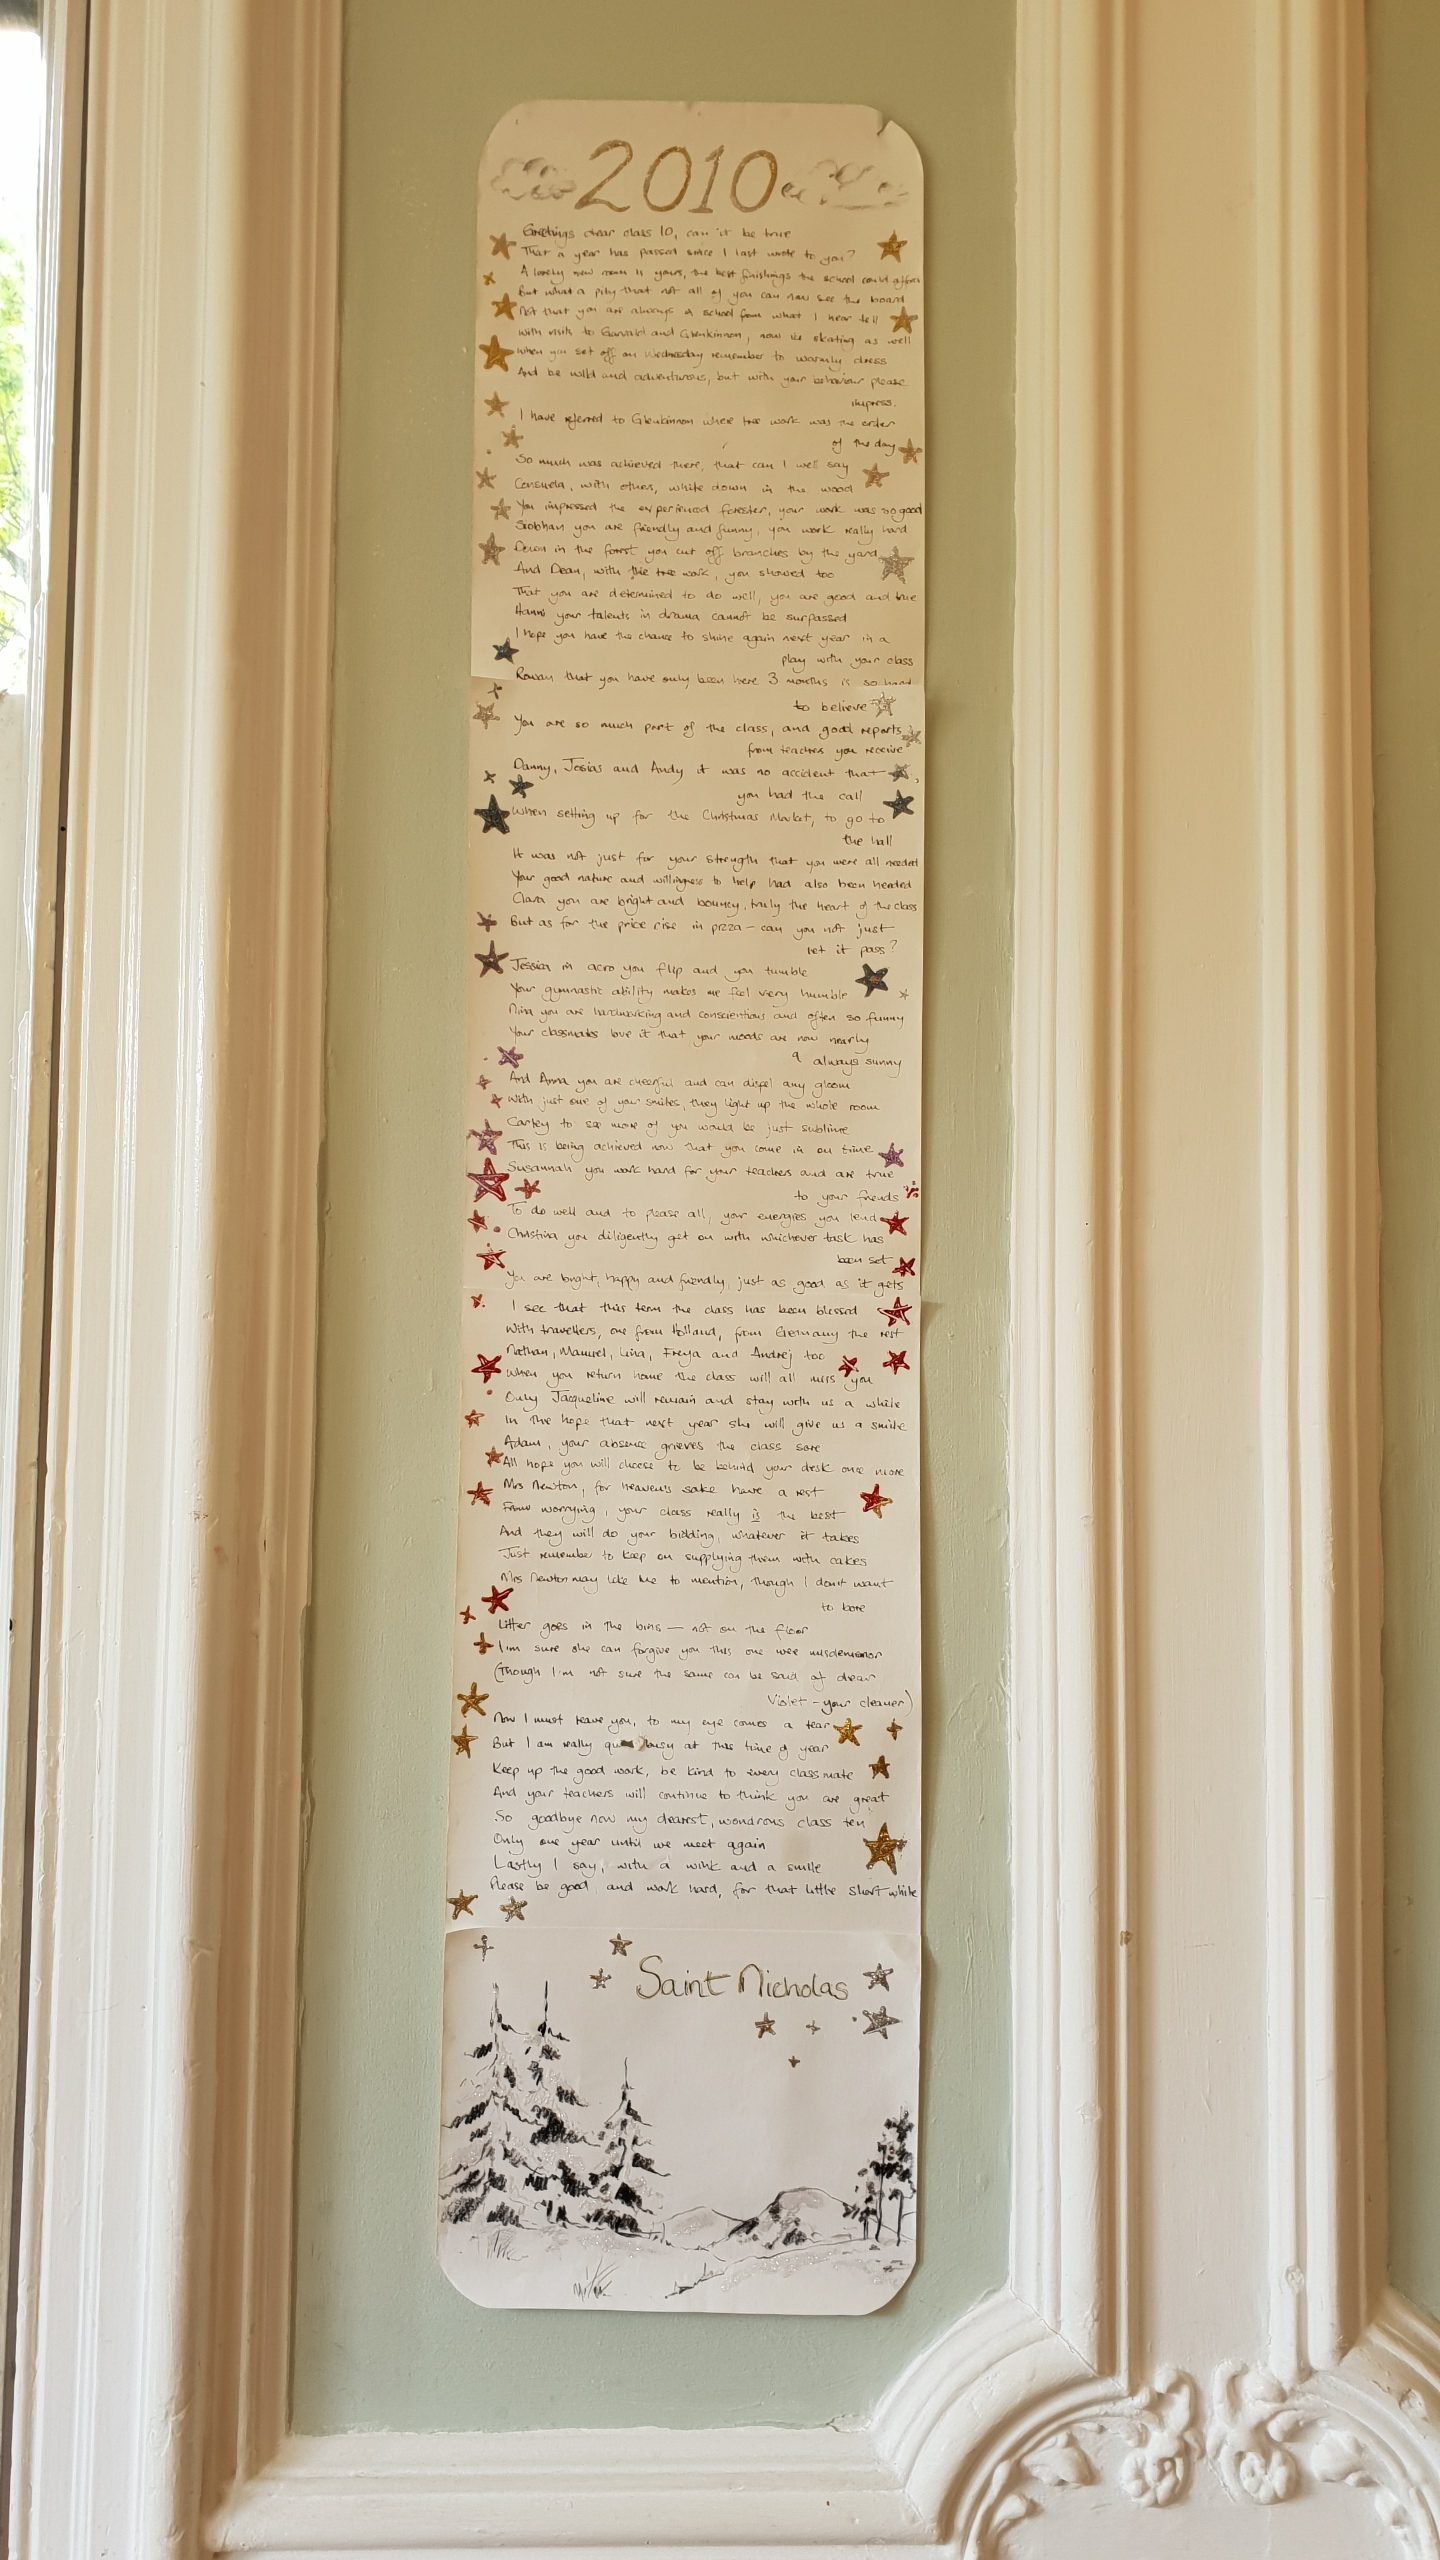 2010
Greetings dear class 10, can it be true
That a year has passed since I last wrote to you?
A lovely new room is yours, the best finishings the school could afford
But what a pity that not all of you can now see the board
Not that you are always at school from what I hear tell
With visits to Garvald and Glenkinnon, now ice skating as well
When you set off on Wednesday remember to warmly dress
And be wild and adventurous, but with your behaviour please
impress.
I have referred to Glenkinnon where tree work was the order
of the day
So much was achieved there, that can I well say
Consuela, with others, while down in the wood
You impressed the experienced forester, your work was so good
Siobhan you are friendly and funny, you work really hard
Down in the forest you cut off branches by the yard
And Dean, with the tree work, you showed too
That you are determined to do well, you are good and true
Hanni your talents in drama cannot be surpassed
I hope you have the chance to shine again next year in a
play with your class
Rowan that you have only been here 3 months is so hard
to believe
You are so much part of the class, and good reports
from teachers you receive
Danny, Josias and Andy it was no accident that
you had the call
When setting up for the Christmas Market, to go to
the hall
It was not just for your strength that you were all needed
Your good nature and willingness to help had also been heeded
Clara you are bright and bouncy, truly the heart of the class
But as for the price rise in pizza - can you not just
let it pass?
Jessica in acro you flip and you tumble
Your gymnastic ability makes me feel very humble
Nina you are hardworking and conscientious and often so funny
Your classmates love it that your moods are now nearly
always sunny
And Anna you are cheerful and can dispel any gloom
With just one of your smiles, they light up the whole room
Carley to see more of you would be just sublime
This is being achieved now that you come in on time
Susannah you work hard for your teachers and are true
to your friends
To do well and to please all, your energies you lend
Christina you diligently get on with whichever task has
been set
You are bright, happy and friendly, just as good as it gets
I see that this term the class has been blessed
With travellers, one from Holland, from Germany the rest
Nathan, Manuel, Lina, Freya and Andrej too
When you return home the class will all miss you
Only Jacqueline will remain and stay with us a while
In the hope that next year she will give us a smile
Adam, your absence grieves the class sore
All hope you will choose to be behind your desk once more
Mrs Newton, for heaven's sake have a rest
From worrying, your class really is the best
And they will do your bidding, whatever it takes
Just remember to keep on supplying them with cakes
Mrs Newton may like me to mention, though I don't want
to bore
Litter goes in the bins — not on the floor
I'm sure she can forgive you this one wee misdemenor
(Though I'm not sure the same can be said of dear
Violet - your cleaner)
Now I must leave you, to my eye comes a tear
But I am really busy at this time of year
Keep up the good work, be kind to every classmate
And your teachers will continue to think you are great
So goodbye now my dearest, wondrous class ten
Only one year until we meet again
Lastly I say, with a wink and a smile
Please be good, and work hard, for that little short while
Saint Nicholas